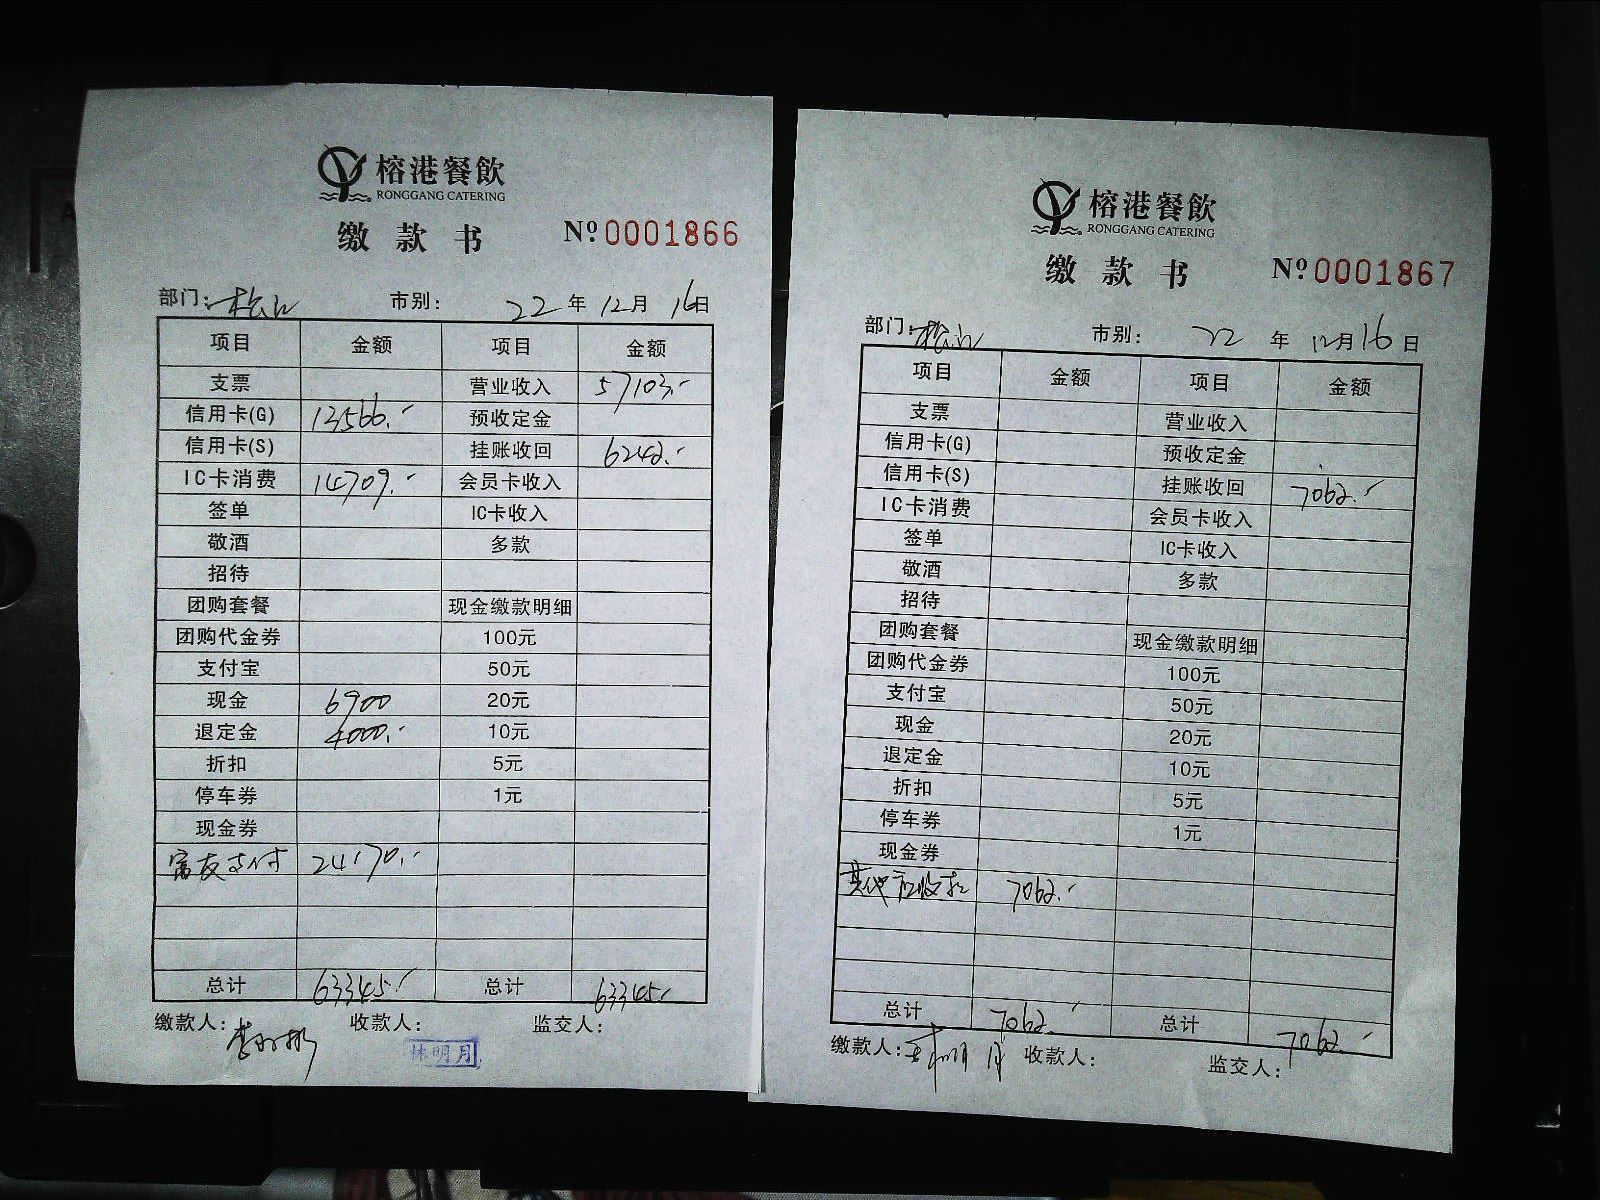 榕港餐飲
RONGGANG CATERING
缴款书 Nº0001866
部门：松江 市别： 22年12月16日
项目 金额 项目 金额
支票 营业收入 57103.-
信用卡(G) 13566.- 预收定金
信用卡(S) 挂账收回 6242.-
IC卡消费 14709.- 会员卡收入
签单 IC卡收入
敬酒 多款
招待
团购套餐 现金缴款明细
团购代金券 100元
支付宝 50元
现金 6900 20元
退定金 4000.- 10元
折扣 5元
停车券 1元
现金券
富友支付 24170.-
总计 63345.- 总计 63345.-
缴款人： 收款人： 监交人：
林明月
榕港餐飲
RONGGANG CATERING
缴款书 Nº0001867
部门：松江 市别： 22年12月16日
项目 金额 项目 金额
支票 营业收入
信用卡(G) 预收定金
信用卡(S) 挂账收回 7062.-
IC卡消费 会员卡收入
签单 IC卡收入
敬酒 多款
招待
团购套餐 现金缴款明细
团购代金券 100元
支付宝 50元
现金 20元
退定金 10元
折扣 5元
停车券 1元
现金券
其他应收款 7062.-
总计 7062.- 总计 7062.-
缴款人： 收款人： 监交人：